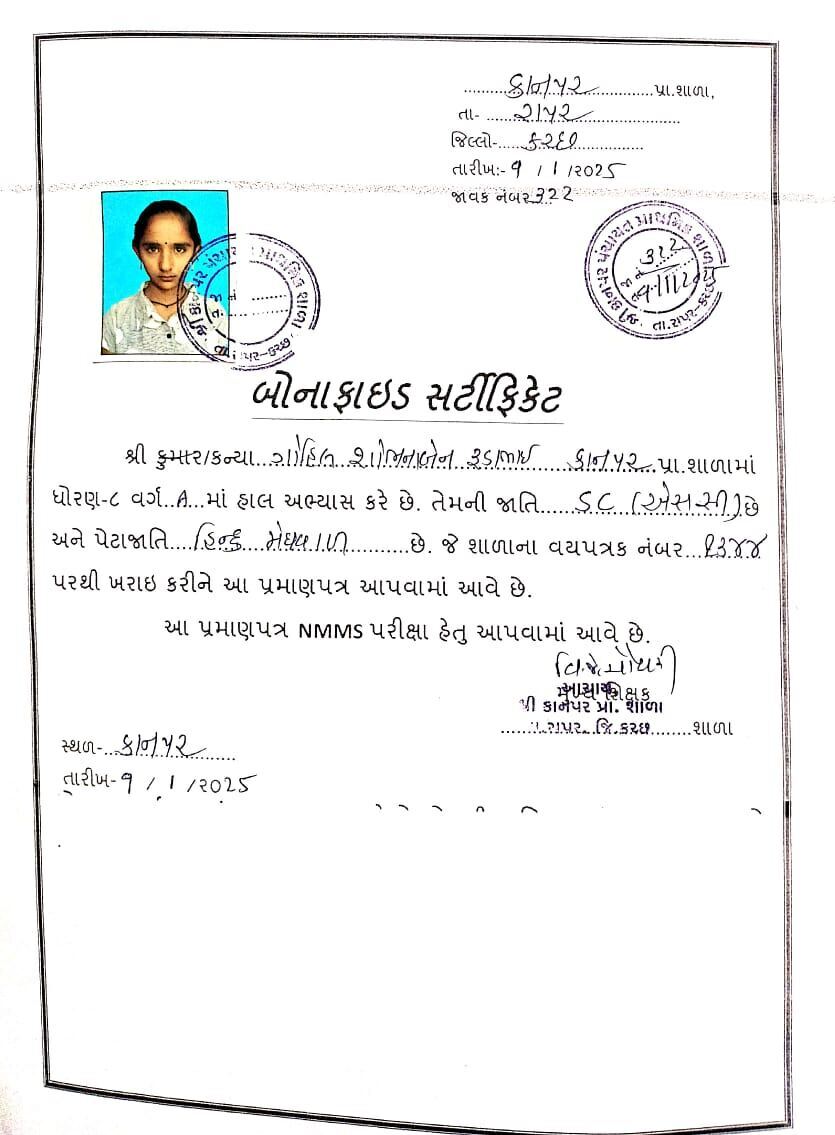 કાનપર પ્રા.શાળા,
તા- રાપર
જિલ્લો- કચ્છ
તારીખ:- ૧ / 1 /૨૦25
જાવક નંબર ૩૨૨
કાનપર પંચાયત પ્રાથમિક શાળા
જા નં
તા.
તા. રાપર-કચ્છ
કાનપર પંચાયત પ્રાથમિક શાળા
જા નં ૩૨૨
તા.રાપર-કચ્છ
બોનાફાઇડ સર્ટીફિકેટ
શ્રી કુમાર/કન્યા ગોહિલ શોભનાબેન રૂડાભાઇ કાનપર પ્રા.શાળામાં
ધોરણ-૮ વર્ગ A માં હાલ અભ્યાસ કરે છે. તેમની જાતિ SC (એસસી) છે
અને પેટાજાતિ હિન્દુ મેઘવાળ છે. જે શાળાના વયપત્રક નંબર ૧૩૪૪
પરથી ખરાઇ કરીને આ પ્રમાણપત્ર આપવામાં આવે છે.
આ પ્રમાણપત્ર NMMS પરીક્ષા હેતુ આપવામાં આવે છે.
મુખ્ય શિક્ષક
આચાર્ય
શ્રી કાનપર પ્રા. શાળા
તા.રાપર જિ.કચ્છ શાળા
સ્થળ- કાનપર
તારીખ- ૧ / 1 /૨૦25